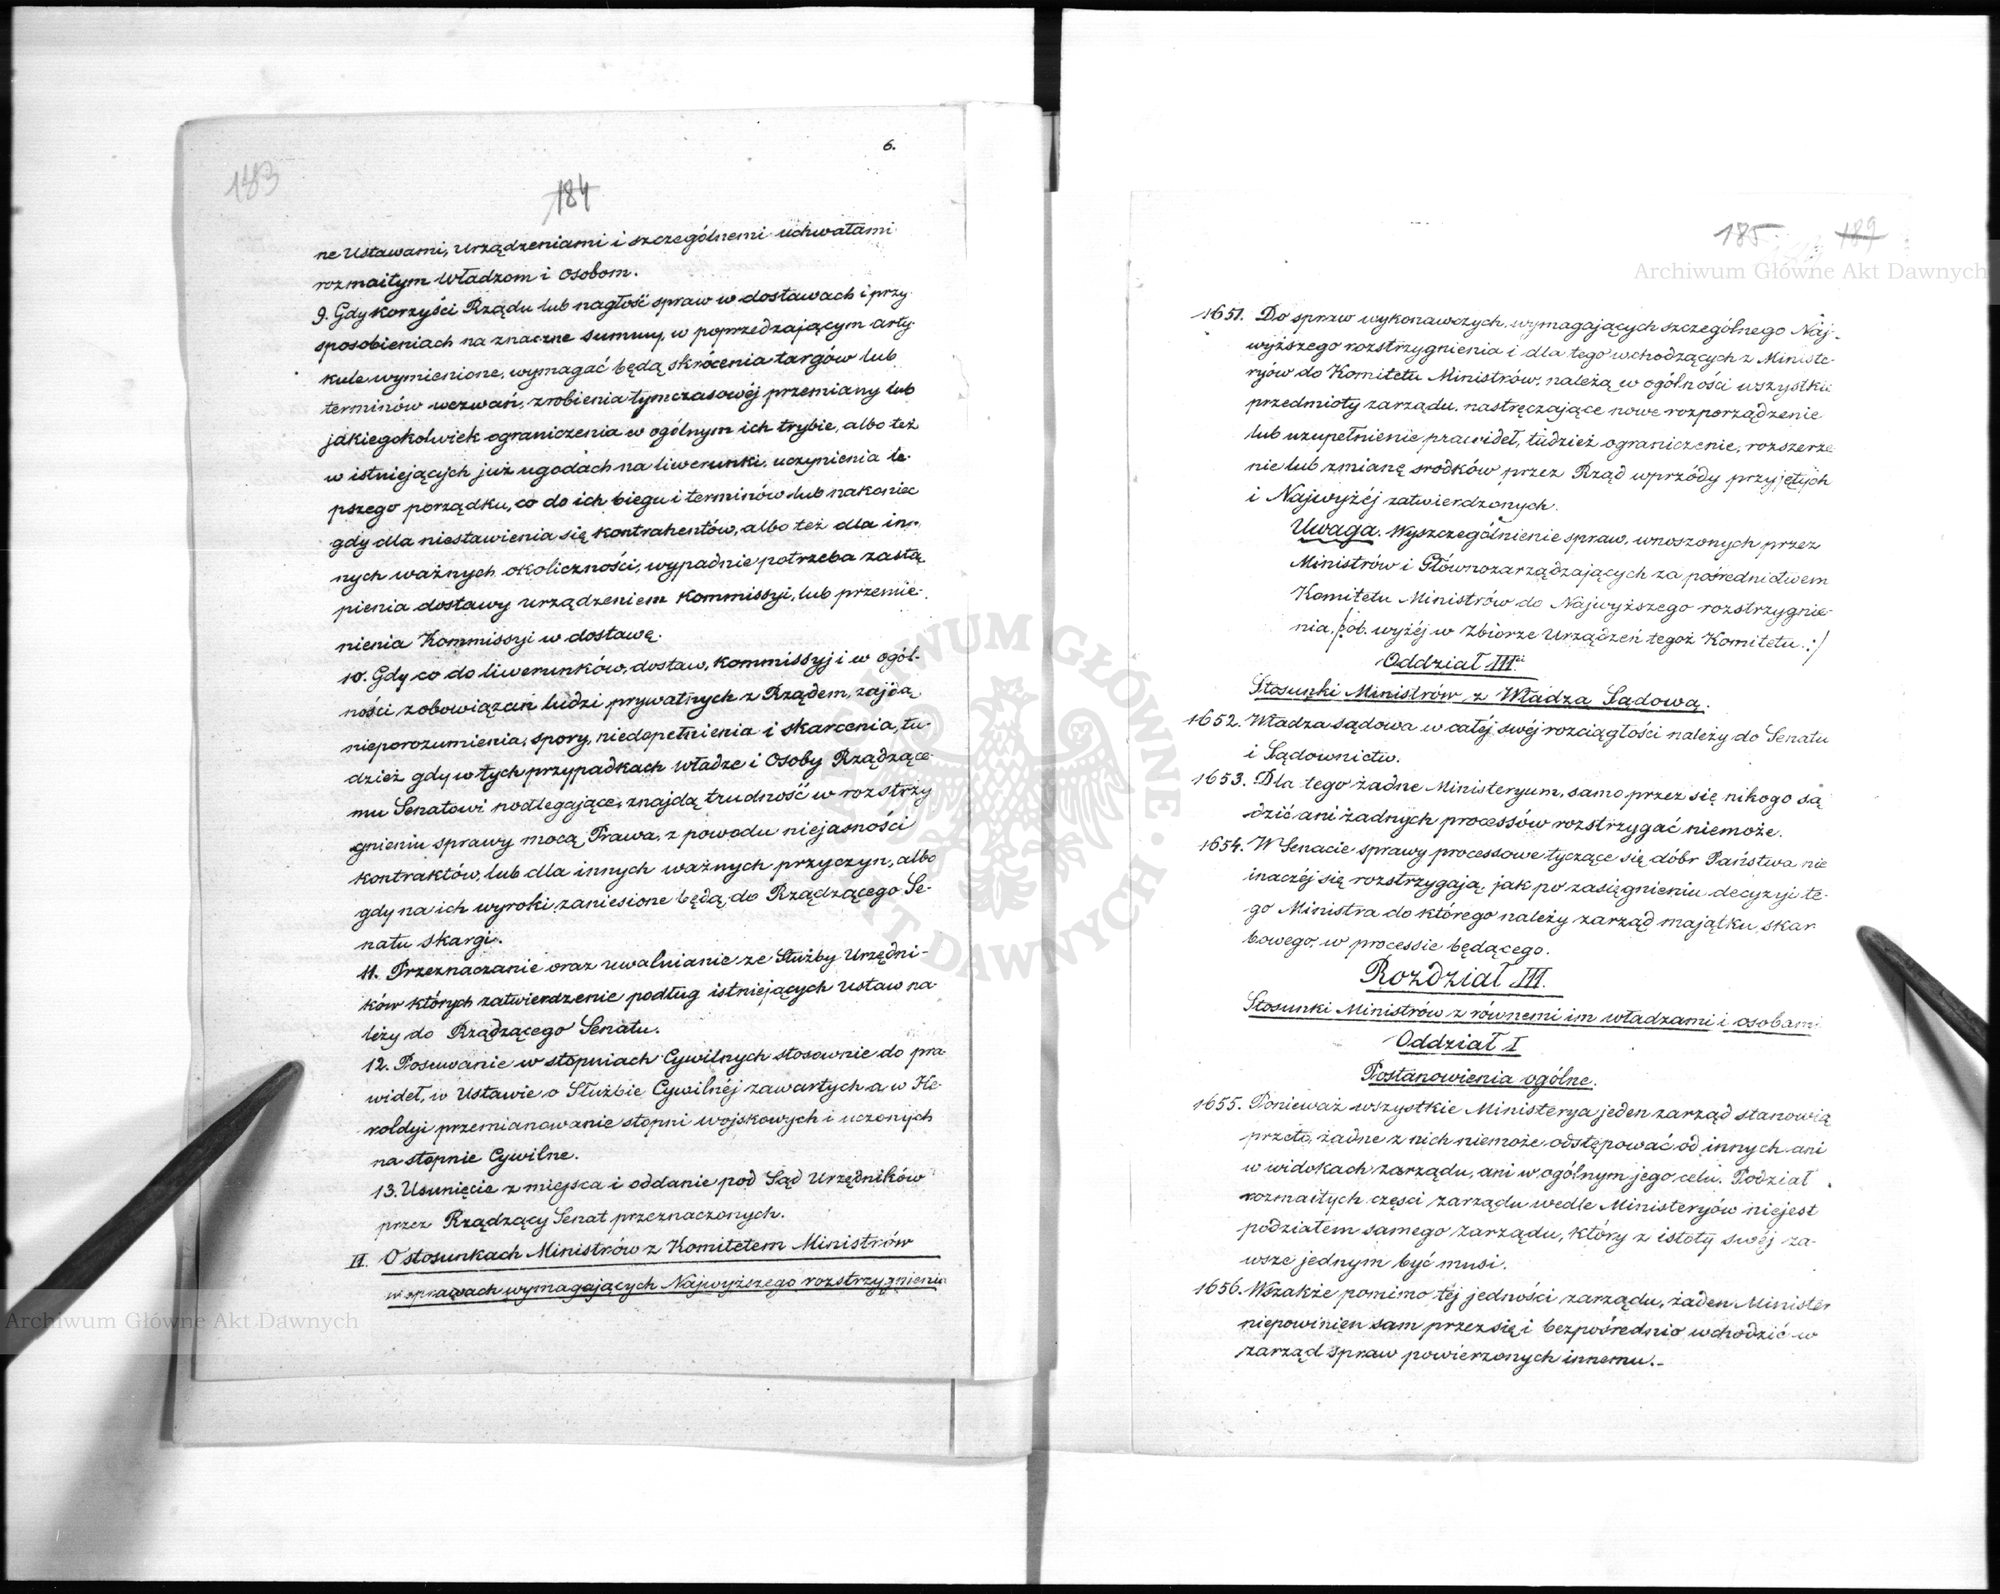 6.
183
184
ne Ustawami, Urządzeniami i szczególnemi uchwałami
rozmaitym Władzom i osobom.
9. Gdy korzyści Rządu lub nagłość spraw w dostawach i przy-
sposobieniach na znaczne summy, w poprzedzającym arty-
kule wymienione, wymagać będą skrócenia targów lub
terminów wezwań, zrobienia tymczasowéj przemiany lub
jakiegokolwiek ograniczenia w ogólnym ich trybie, albo też
w istniejących już ugodach na liwerunki, uczynienia le-
pszego porządku, co do ich biegu i terminów lub nakoniec
gdy dla niestawienia się kontrahentów, albo też dla in-
nych ważnych okoliczności, wypadnie potrzeba zastą-
pienia dostawy urządzeniem Kommissyi, lub przemie-
nienia Kommissyi w dostawę.
10. Gdy co do liwerunków, dostaw, kommissyj i w ogól-
ności zobowiązań ludzi prywatnych z Rządem, zajdą
nieporozumienia, spory, niedopełnienia i skarcenia, tu-
dzież gdy w tych przypadkach władze i Osoby Rządzące-
mu Senatowi podlegające, znajdą trudność w rozstrzy
gnieniu sprawy mocą Prawa, z powodu niejasności
kontraktów, lub dla innych ważnych przyczyn, albo
gdy na ich wyroki zaniesione będą do Rządzącego Se-
natu skargi.
11. Przeznaczanie oraz uwalnianie ze Służby Urzędni-
ków których zatwierdzenie podług istniejących ustaw na-
leży do Rządzącego Senatu.
12. Posuwanie w stopniach Cywilnych stosownie do pra-
wideł, w Ustawie o Służbie Cywilnéj zawartych a w He-
roldyi przemianowanie stopni wojskowych i uczonych
na stopnie Cywilne.
13. Usunięcie z miejsca i oddanie pod Sąd Urzędników
przez Rządzący Senat przeznaczonych.
II. O stosunkach Ministrów z Komitetem Ministrów
w sprawach wymagających Najwyższego rozstrzygnienia
185 189
1651. Do spraw wykonawczych, wymagających szczególnego Naj-
wyższego rozstrzygnienia i dla tego wchodzących z Ministe-
ryów do Komitetu Ministrów, należą w ogólności wszystkie
przedmioty zarządu, nastręczające nowe rozporządzenie
lub uzupełnienie prawideł, tudzież ograniczenie, rozszerze
nie lub zmianę srodków przez Rząd wprzódy przyjętych
i Najwyżéj zatwierdzonych.
Uwaga. Wyszczególnienie spraw, wnoszonych przez
Ministrów i Głównozarządzających za pośrednictwem
Komitetu Ministrów do Najwyższego rozstrzygnie-
nia, /:ob. wyżéj w Zbiorze Urządzeń tegoż Komitetu.:/
Oddział III.
Stosunki Ministrów z Władzą Sądową.
1652. Władza sądowa w całéj swéj rozciągłości należy do Senatu
i Sądownictw.
1653. Dla tego żadne Ministeryum, samo przez się nikogo są
dzić ani żadnych processów rozstrzygać niemoże.
1654. W Senacie sprawy processowe tyczące się dóbr Państwa nie
inaczéj się rozstrzygają, jak po zasiągnieniu decyzyi te-
go Ministra do którego należy zarząd majątku skar
bowego w processie będącego.
Rozdział III.
Stosunki Ministrów z równemi im władzami i osobami
Oddział I
Postanowienia ogólne.
1655. Ponieważ wszystkie Ministerya jeden zarząd stanowią
przeto, żadne z nich niemoże odstępować od innych ani
w widokach zarządu, ani w ogólnym jego celu. Podział
rozmaitych części zarządu wedle Ministeryów niejest
podziałem samego zarządu, który z istoty swéj za-
wsze jednym być musi.
1656. Wszakże pomimo téj jedności zarządu, żaden Minister
niepowinien sam przez się i bezpośrednio wchodzić w
zarząd spraw powierzonych innemu.
Archiwum Główne Akt Dawnych
Archiwum Główne Akt Dawnych
ARCHIWUM GŁÓWNE AKT DAWNYCH